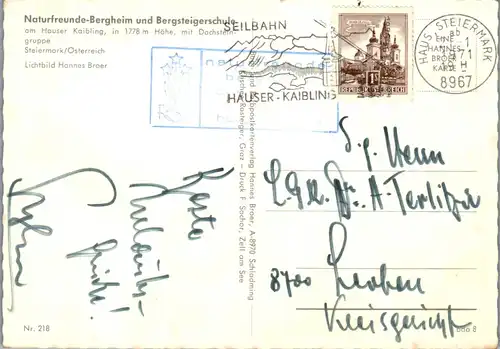 Naturfreunde-Bergheim und Bergsteigerschule
am Hauser Kaibling, in 1778 m Höhe, mit Dachstein-
gruppe
Steiermark/Österreich
Lichtbild Hannes Broer
SEILBAHN
HAUSER-KAIBLING
REPUBLIK ÖSTERREICH
HAUS, STEIERMARK
ab
EINE
HANNES
BROER
KARTE
8967
Postkartenverlag Hannes Broer, A-8970 Schladming
Graz - Druck F. Sochor, Zell am See
Beste
Urlaubs-
grüße!
S.g. Herrn
Dr. A. Terlitza
8700 Leoben
Kreisgericht
Nr. 218